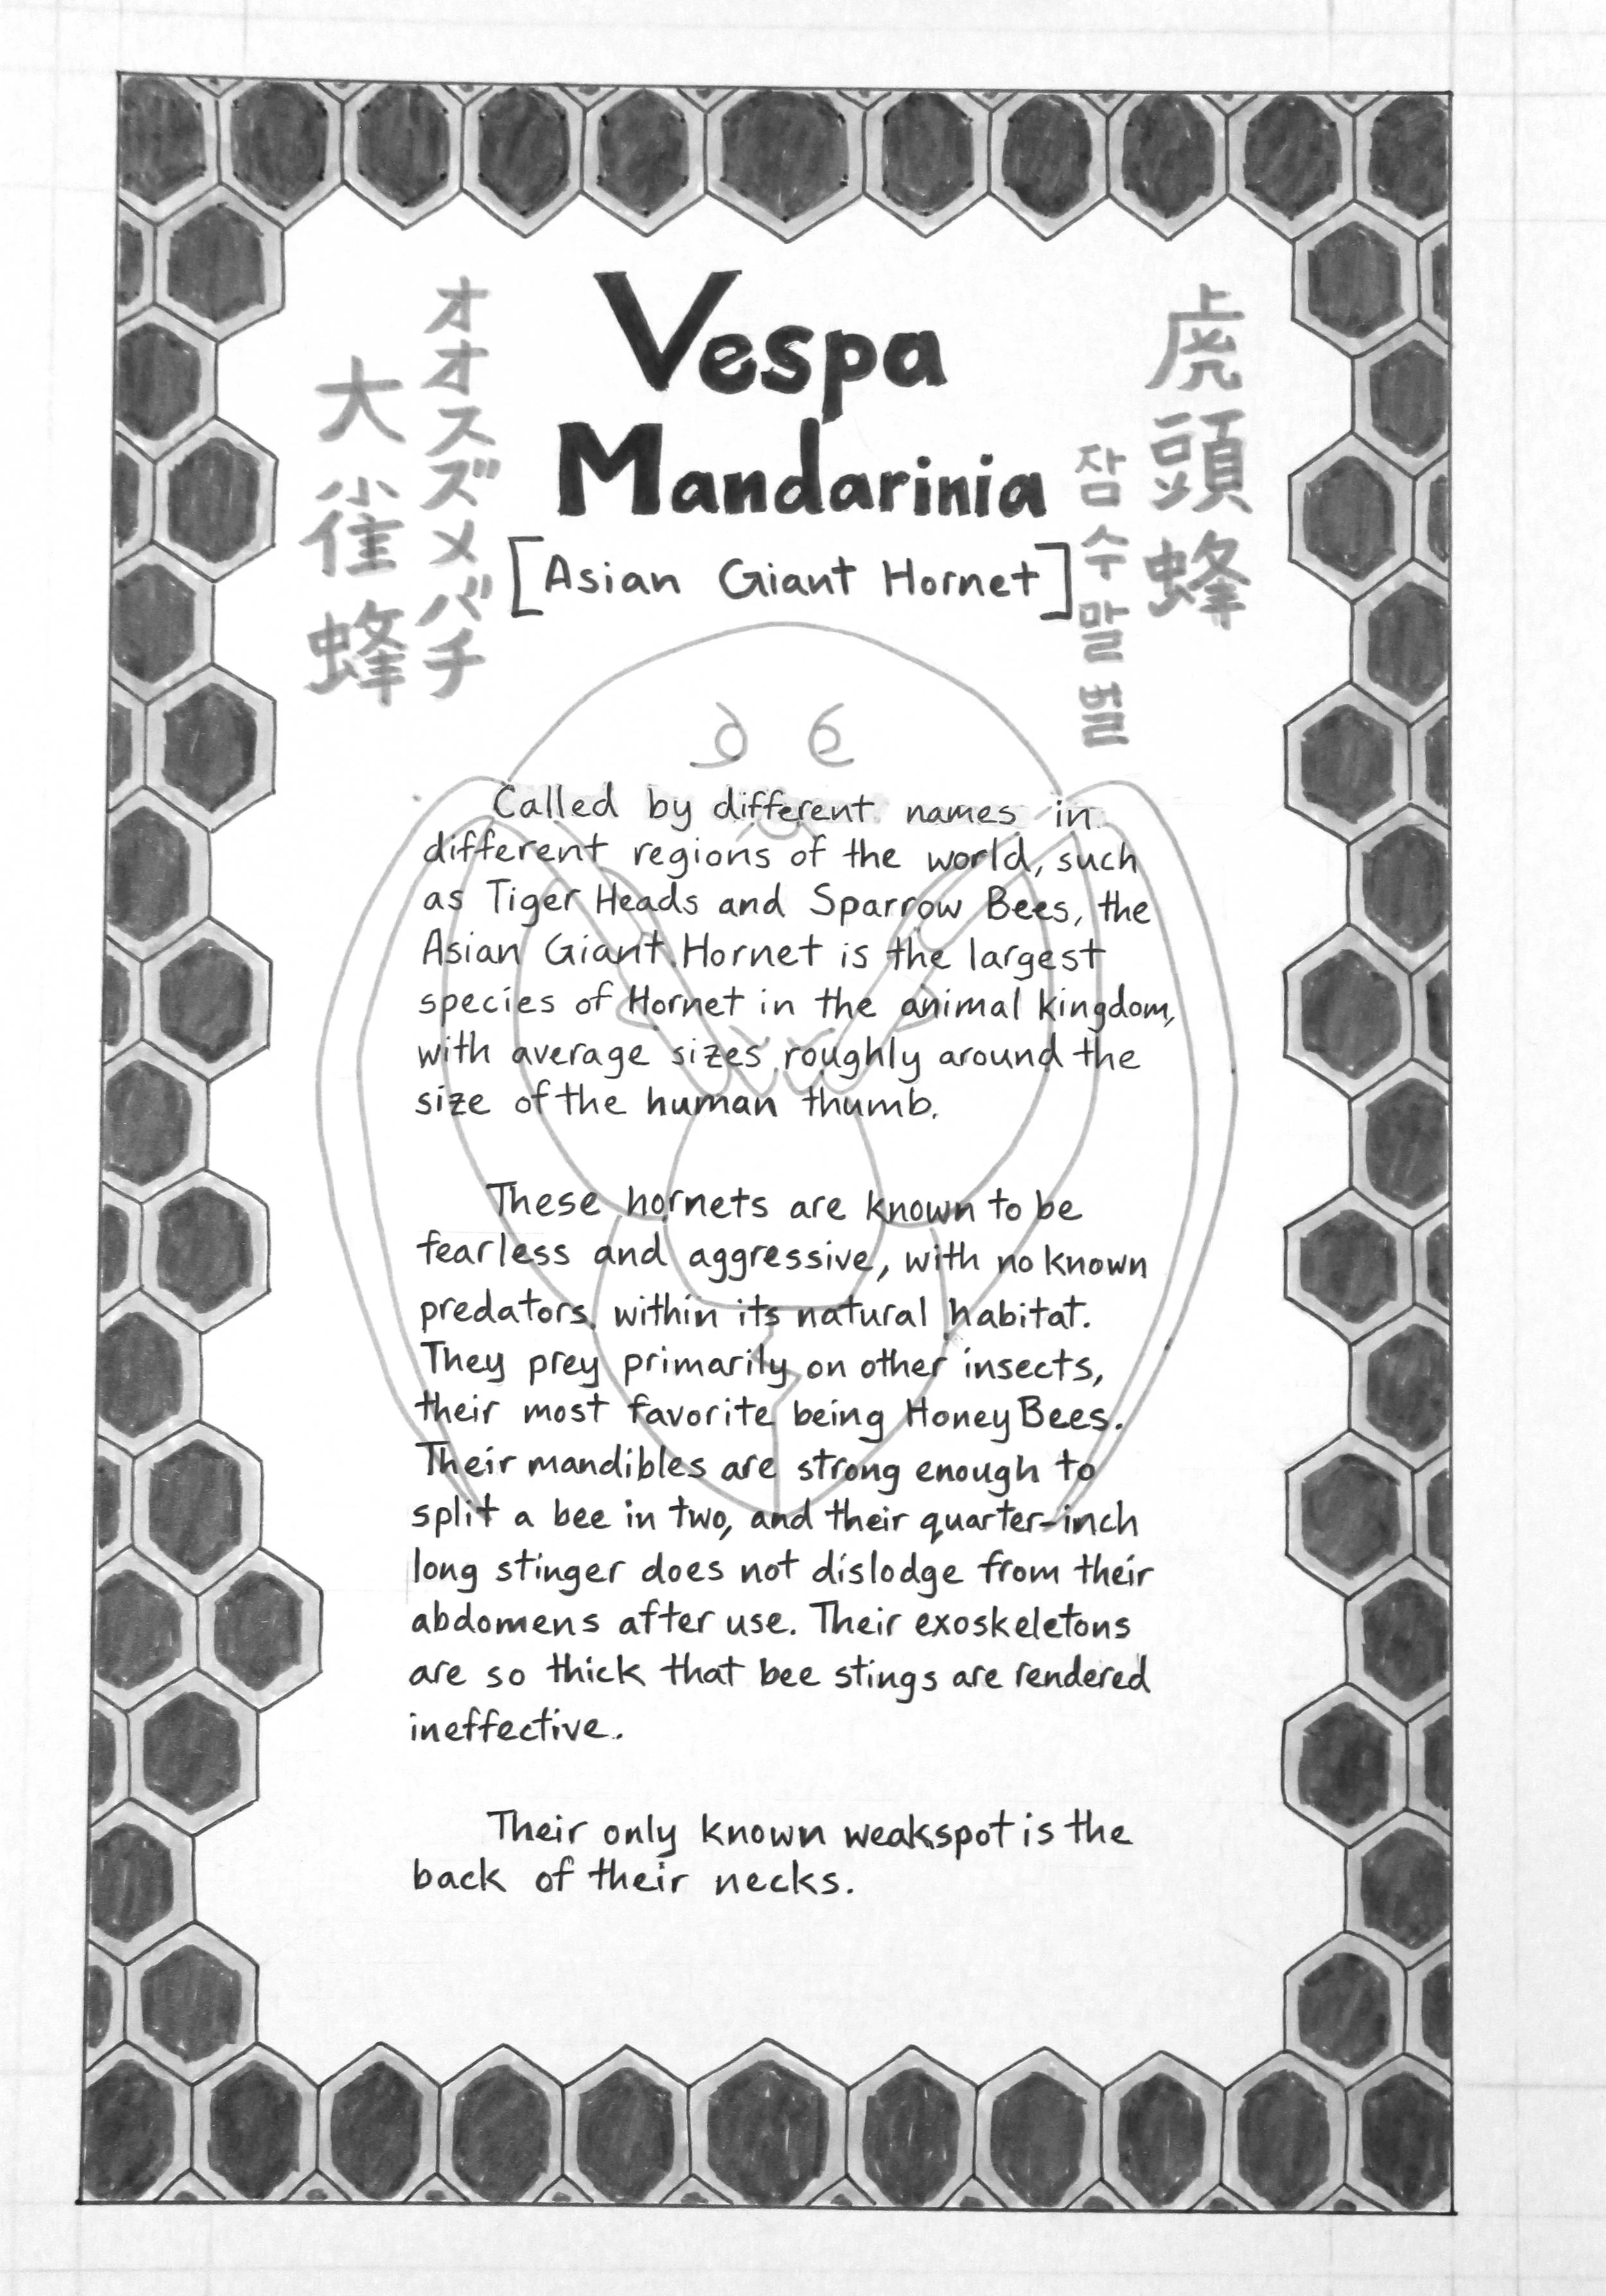 オオスズメバチ
大雀蜂
Vespa
Mandarinia
[Asian Giant Hornet]
虎頭蜂
잠수말벌
Called by different names in
different regions of the world, such
as Tiger Heads and Sparrow Bees, the
Asian Giant Hornet is the largest
species of Hornet in the animal kingdom,
with average sizes roughly around the
size of the human thumb.
These hornets are known to be
fearless and aggressive, with no known
predators within its natural habitat.
They prey primarily on other insects,
their most favorite being Honey Bees.
Their mandibles are strong enough to
split a bee in two, and their quarter-inch
long stinger does not dislodge from their
abdomens after use. Their exoskeletons
are so thick that bee stings are rendered
ineffective.
Their only known weakspot is the
back of their necks.